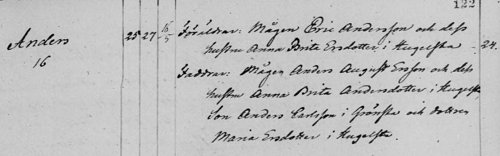 122
Anders 25 27 15/5 Föräldrar: Mågen Eric Andersson och dess
16 hustru Anna Brita Ersdotter i Hugelsta 24.
Faddrar: Mågen Anders August Ersson och dess
hustru Anna Brita Andersdotter i Hugelsta,
Son Anders Carlsson i Grönsta och dottren
Maria Ersdotter i Hugelsta.